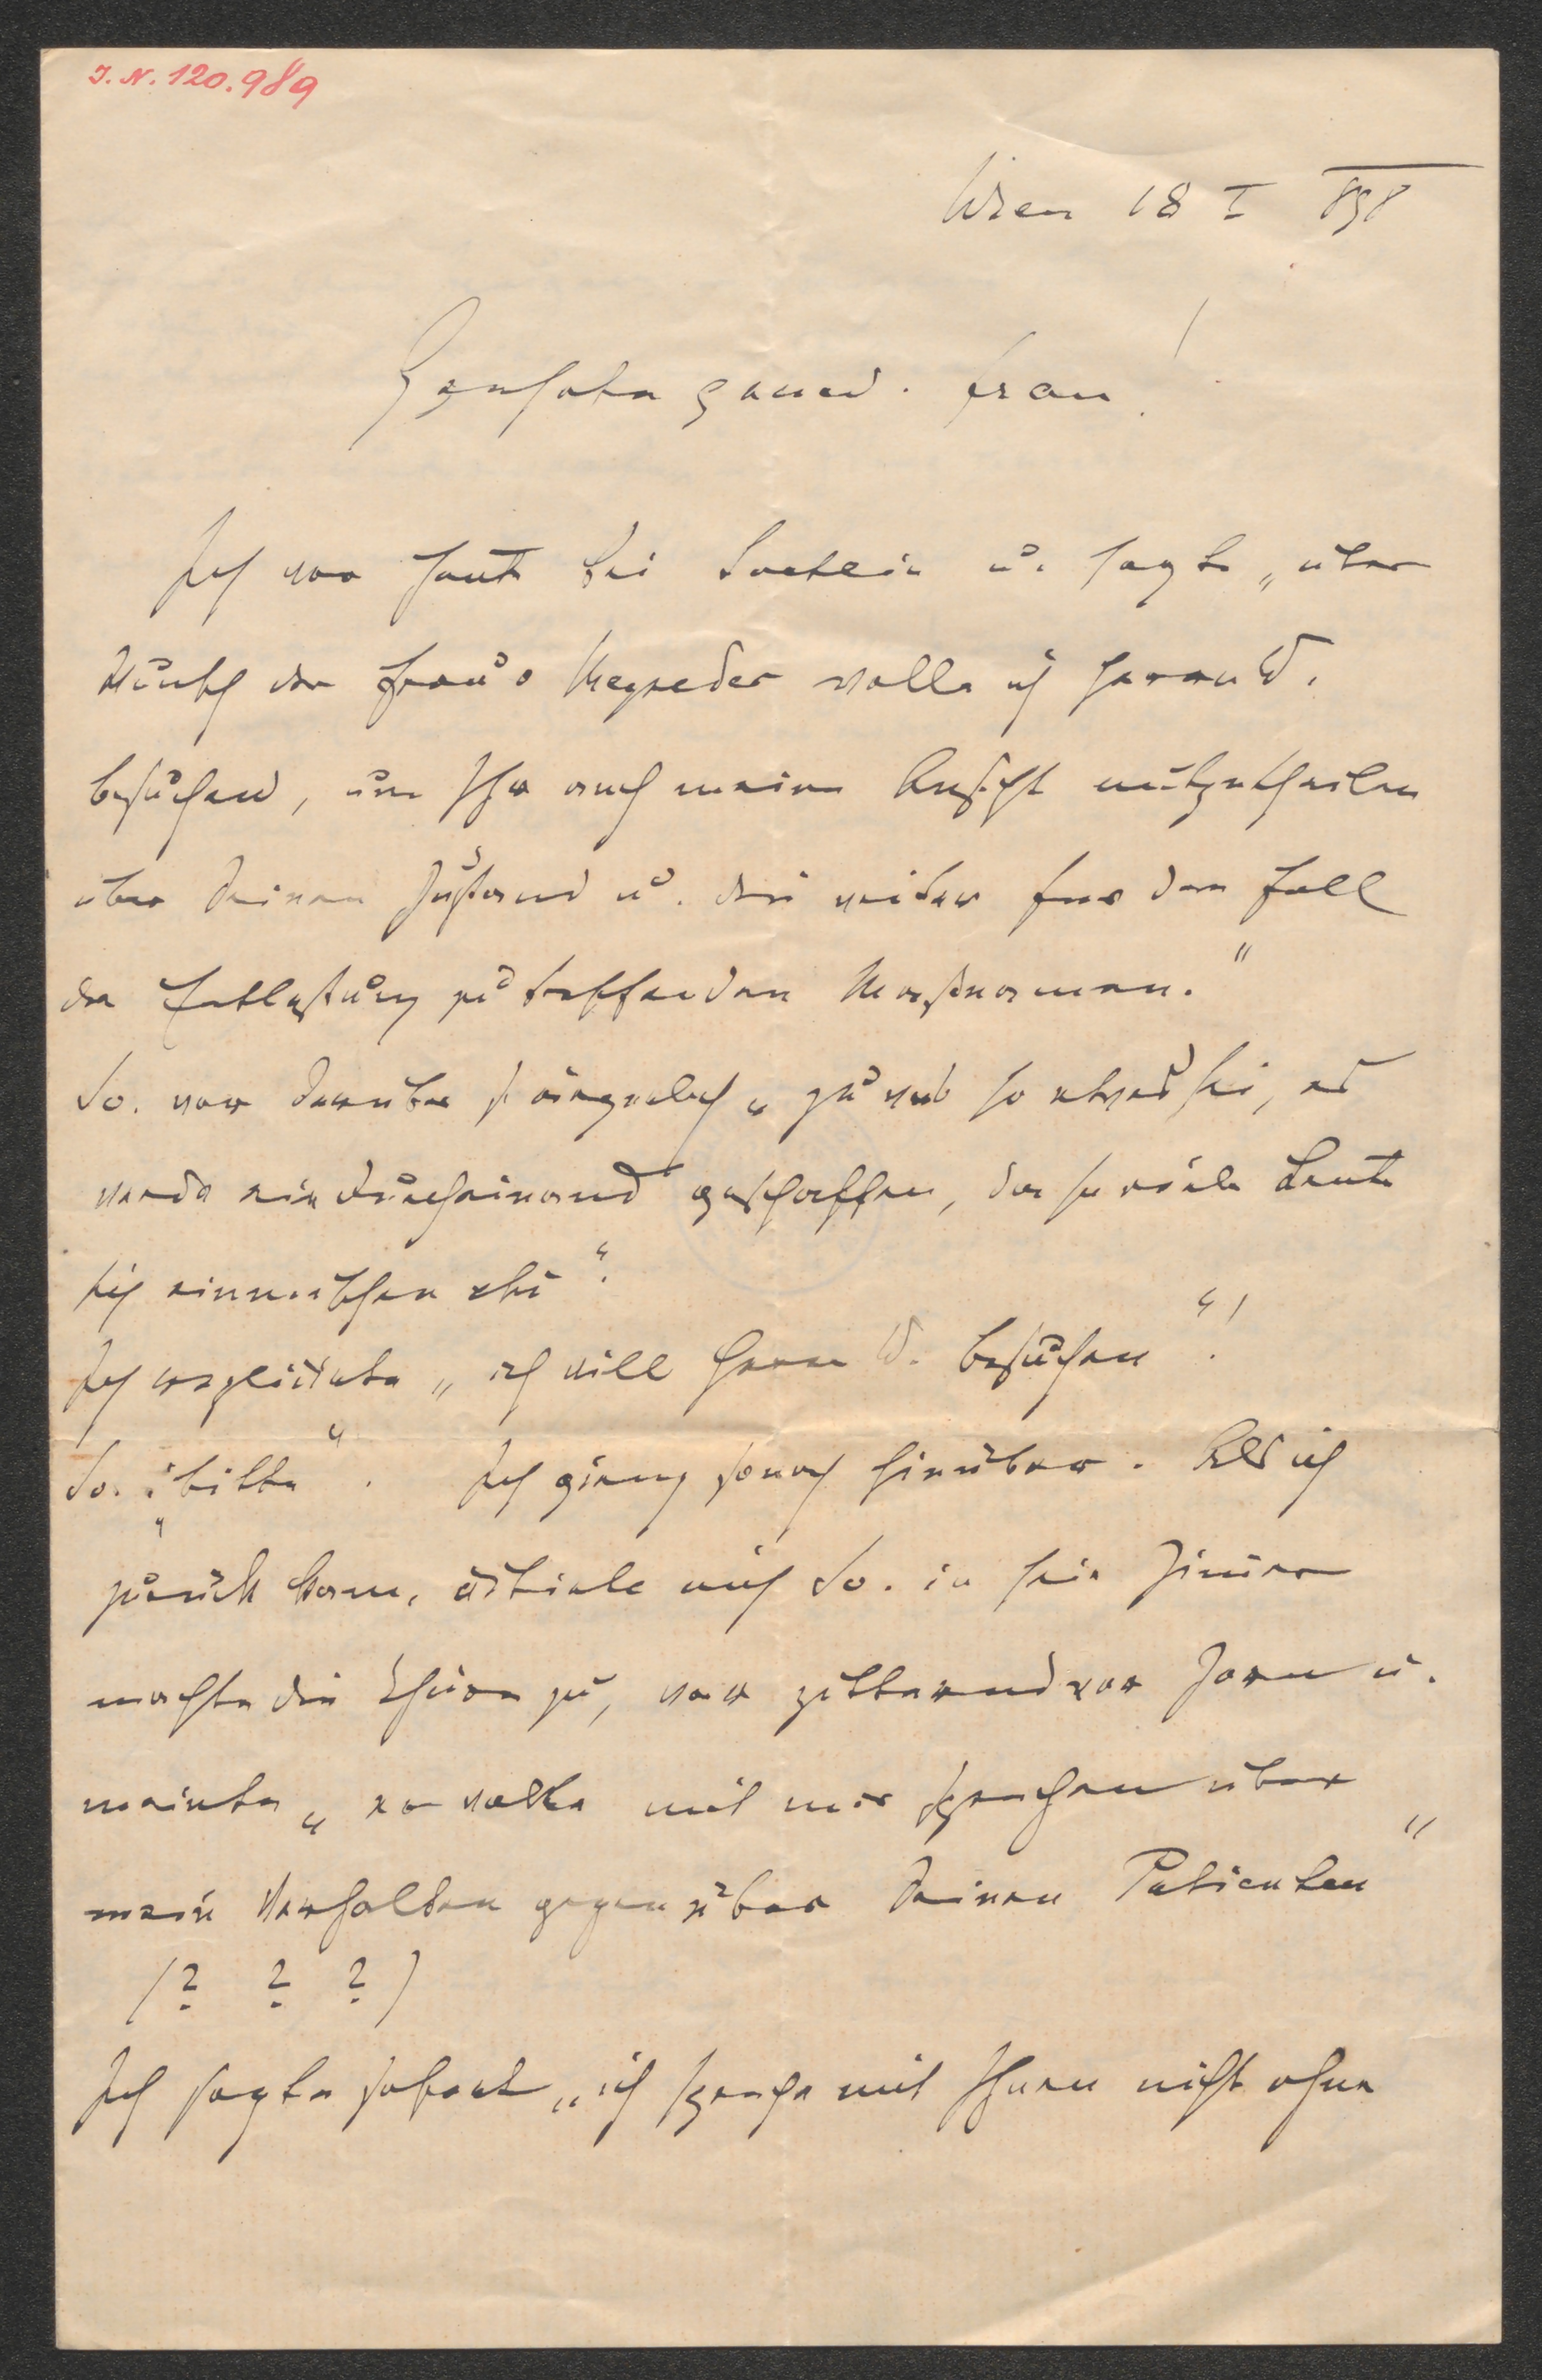 J. N. 120.989
Wien 18 I 898
Geehrte gnäd. Frau!
Ich war heute bei Svetlin u. sagte „über
Wunsch der Frau v Mayreder wolle ich Herrn W.
besuchen, um Ihr auch meine Ansicht mitzutheilen
über seinen Zustand u. die weiter für den Fall
der Entlassung zu treffenden Massnamen."
Sv. war darüber „zu was so etwas sei, es
werde ein Durcheinand geschaffen, da so viele Leute
sich einmischen etc".
Ich erwiderte „ich will Herrn W. besuchen"!
Sv. „bitte". Ich gieng sonach hinüber. Als ich
zurück kam, mich Sv. in sein Zimmer
machte die Thüre zu, war zitternd vor Zorn u.
meinte „er wolle mit mir sprechen über
mein Verhalten gegenüber seinen Patienten"
(? ? ?)
Ich sagte sofort „ich spreche mit Ihnen nicht ohne